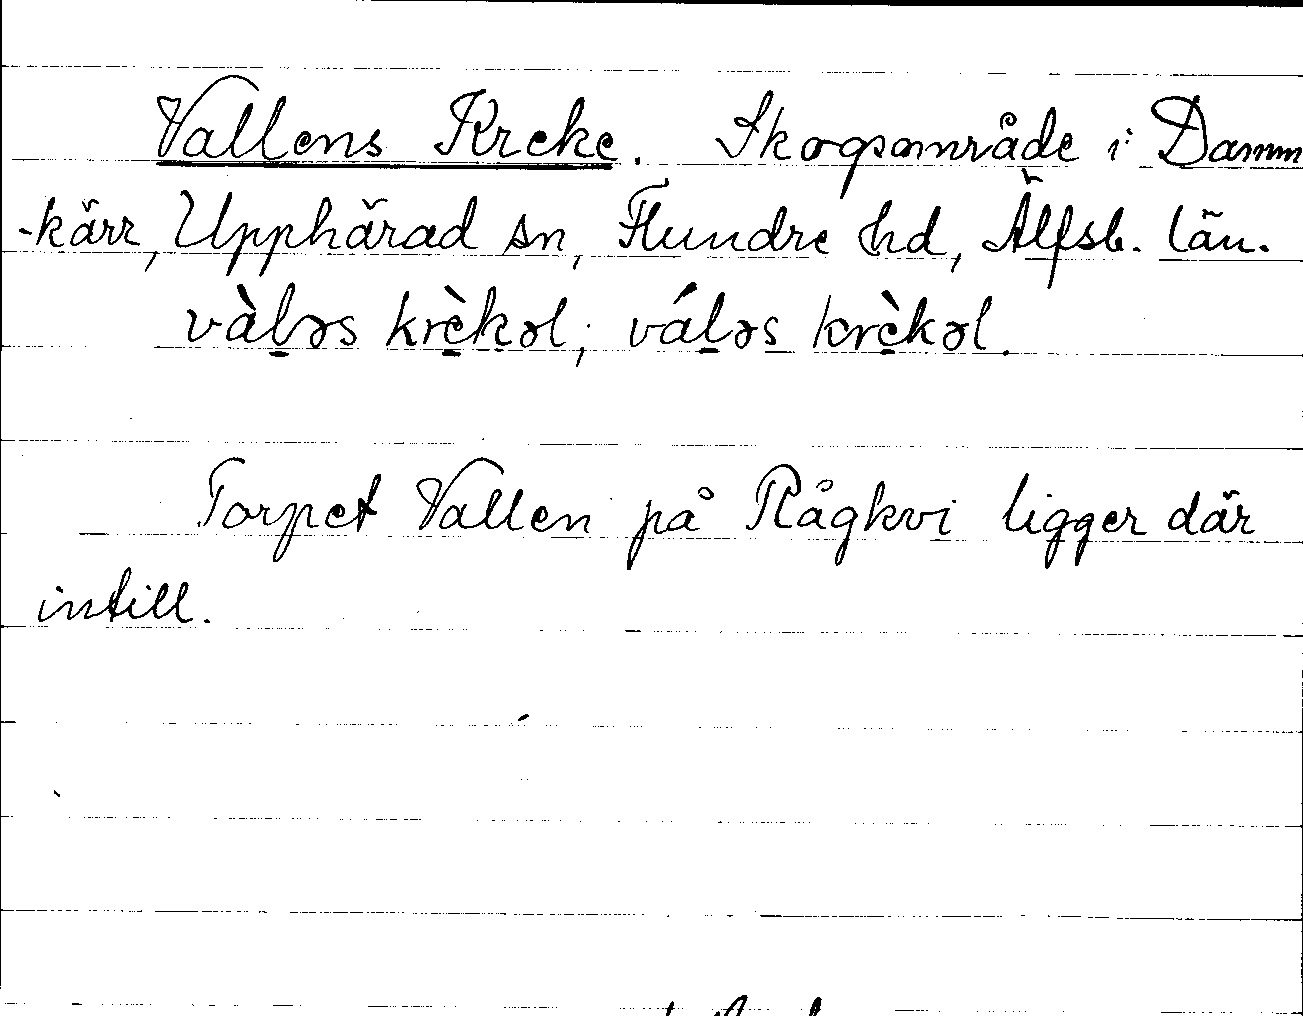 Vallens Kreke. Skogsområde i Damm
-kärr, Upphärad sn, Flundre hd, Älfsb. län.
vàləs krèkəl; váləs krèkəl.
Torpet Vallen på Rågkvi ligger där
intill.